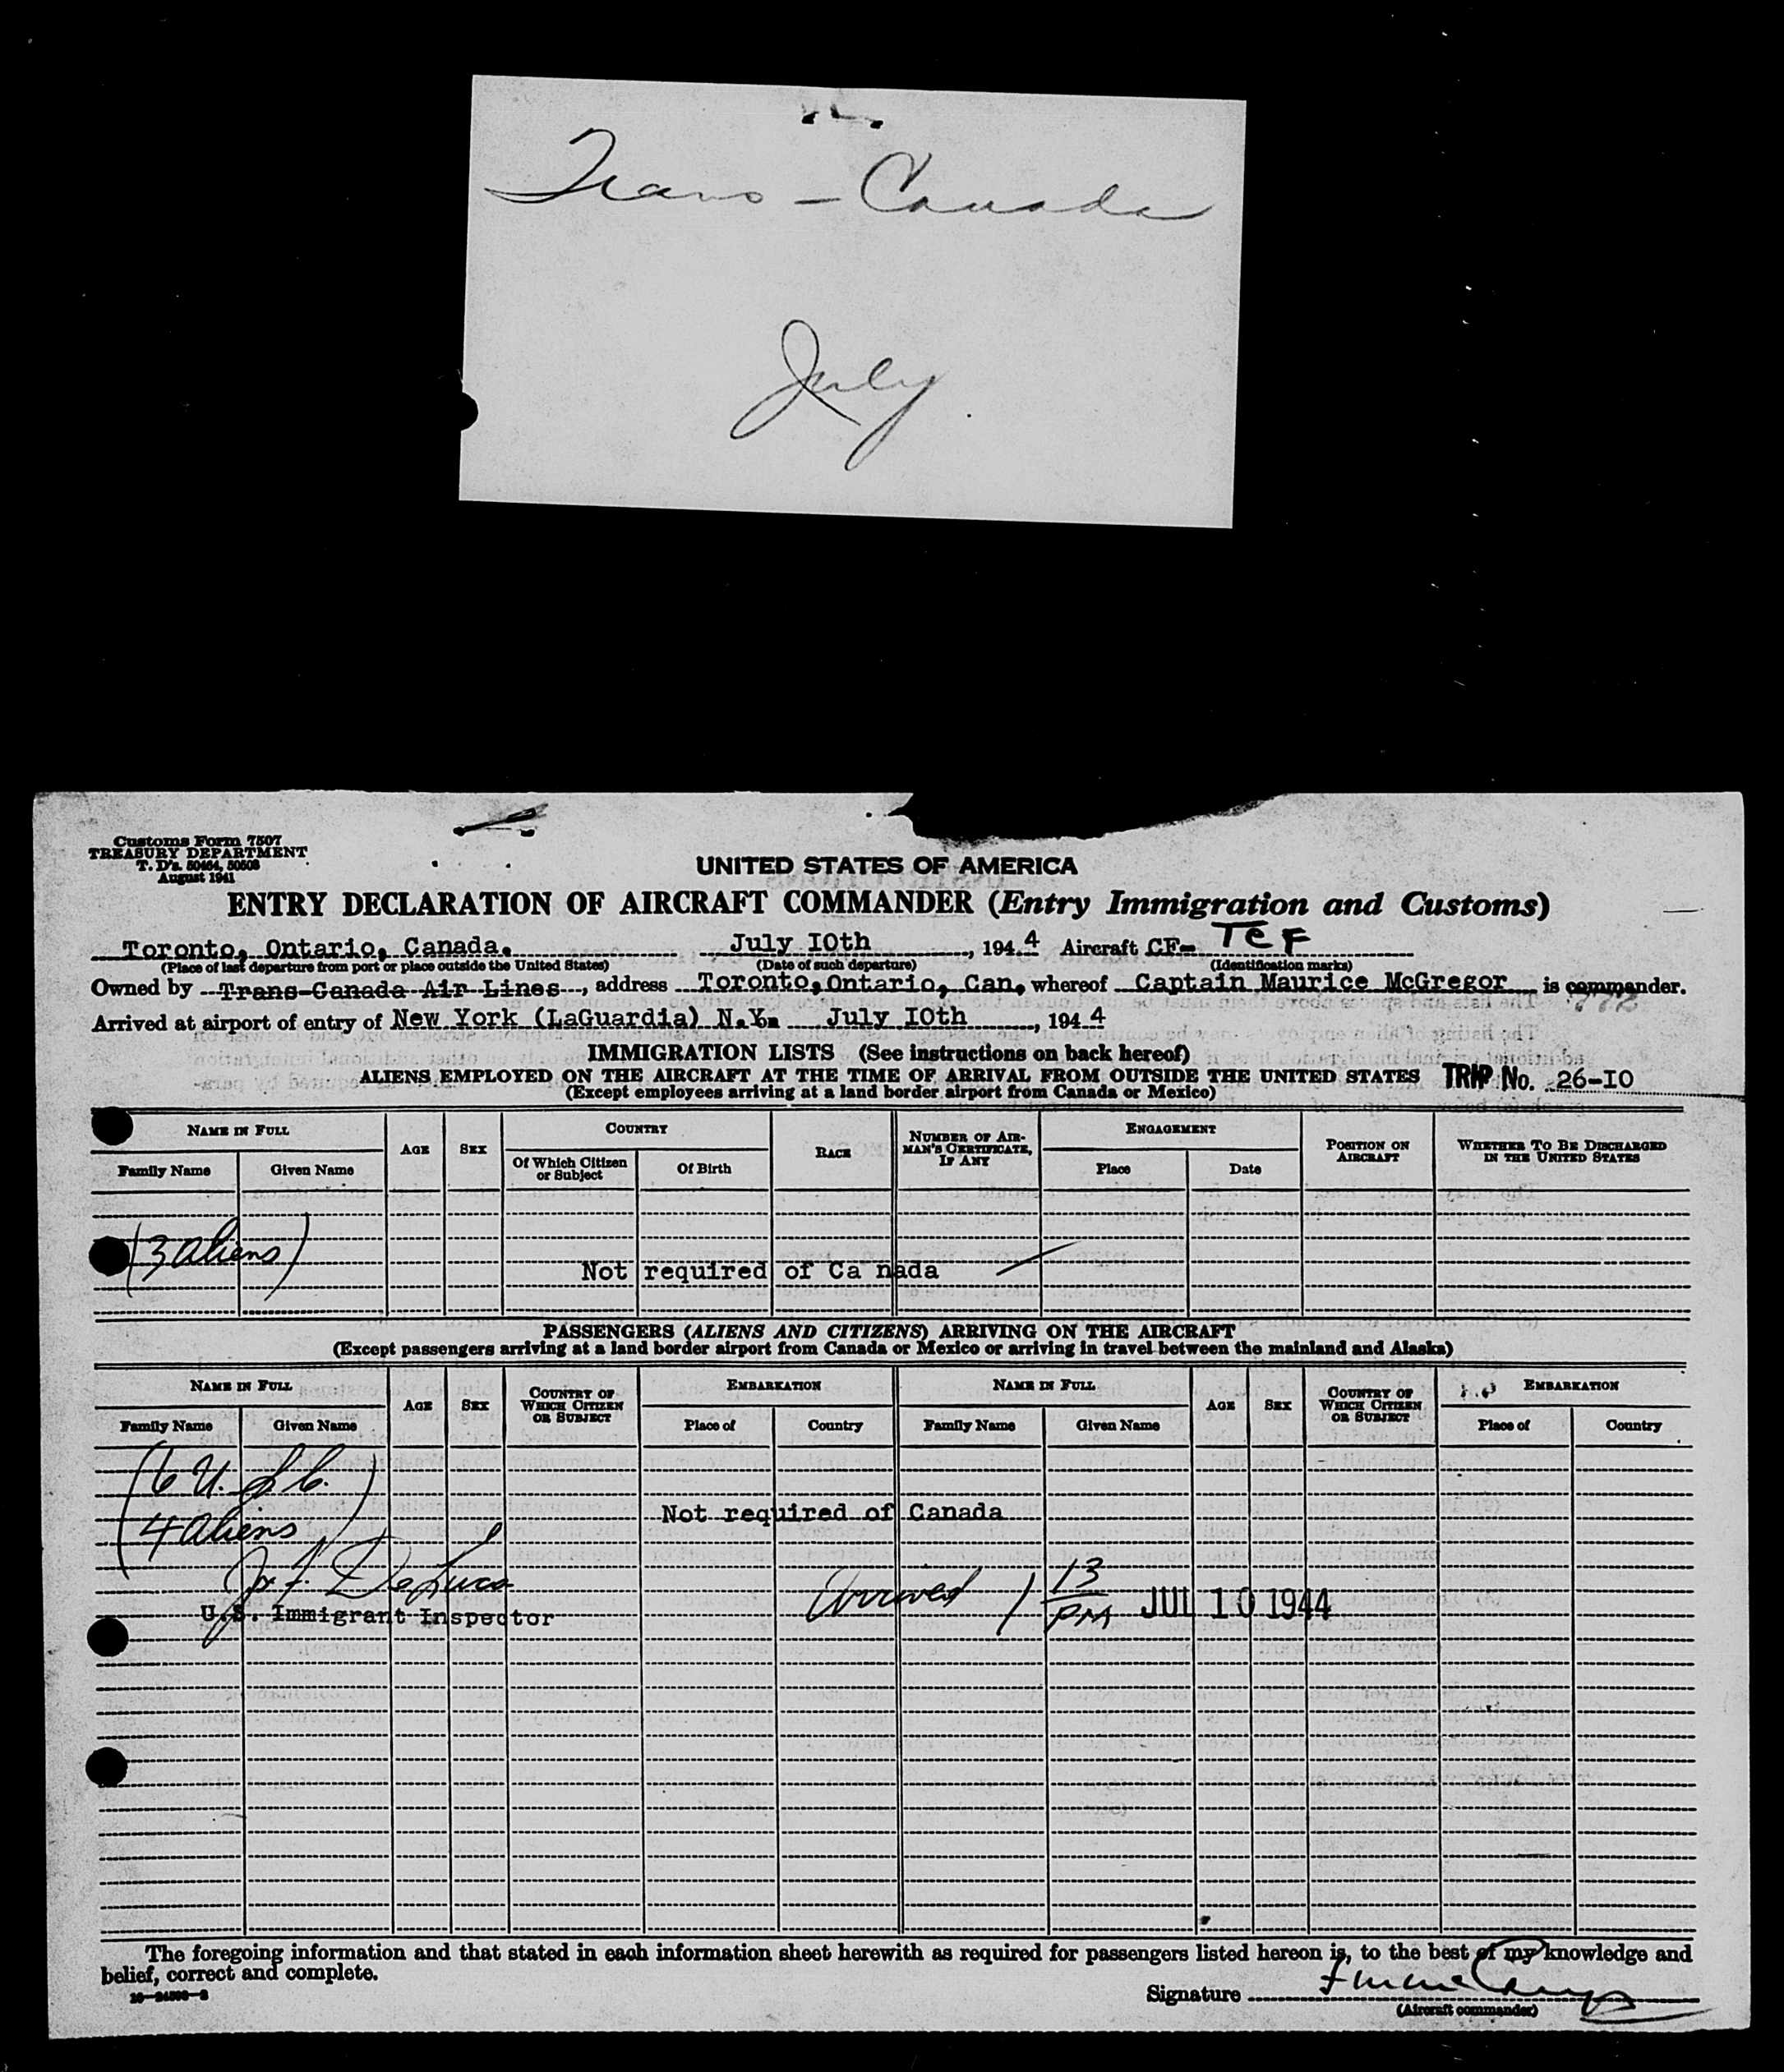 Trans-Canada
July
Customs Form 7507
TREASURY DEPARTMENT
T. D's. 50464, 50503
August 1941
UNITED STATES OF AMERICA
ENTRY DECLARATION OF AIRCRAFT COMMANDER (Entry Immigration and Customs)
Toronto, Ontario, Canada. July IOth, 1944 Aircraft CF- TCF
(Place of last departure from port or place outside the United States) (Date of such departure) (Identification marks)
Owned by Trans-Canada Air Lines, address Toronto, Ontario, Can. whereof Captain Maurice McGregor is commander.
Arrived at airport of entry of New York (LaGuardia) N.Y. July IOth, 1944
IMMIGRATION LISTS (See instructions on back hereof)
ALIENS EMPLOYED ON THE AIRCRAFT AT THE TIME OF ARRIVAL FROM OUTSIDE THE UNITED STATES TRIP No. 26-IO
(Except employees arriving at a land border airport from Canada or Mexico)
NAME IN FULL AGE SEX COUNTRY RACE NUMBER OF AIRMAN'S CERTIFICATE, IF ANY ENGAGEMENT POSITION ON AIRCRAFT WHETHER TO BE DISCHARGED IN THE UNITED STATES
Family Name Given Name Of Which Citizen or Subject Of Birth Place Date
(3 aliens)
Not required of Ca nada
PASSENGERS (ALIENS AND CITIZENS) ARRIVING ON THE AIRCRAFT
(Except passengers arriving at a land border airport from Canada or Mexico or arriving in travel between the mainland and Alaska)
NAME IN FULL AGE SEX COUNTRY OF WHICH CITIZEN OR SUBJECT EMBARKATION NAME IN FULL AGE SEX COUNTRY OF WHICH CITIZEN OR SUBJECT EMBARKATION
Family Name Given Name Place of Country Family Name Given Name Place of Country
(6 U.S.C.
4 aliens)
Not required of Canada
De Luca
U.S. Immigrant Inspector
Arrived 1 13 PM JUL 10 1944
The foregoing information and that stated in each information sheet herewith as required for passengers listed hereon is, to the best of my knowledge and
belief, correct and complete.
Signature
(Aircraft commander)